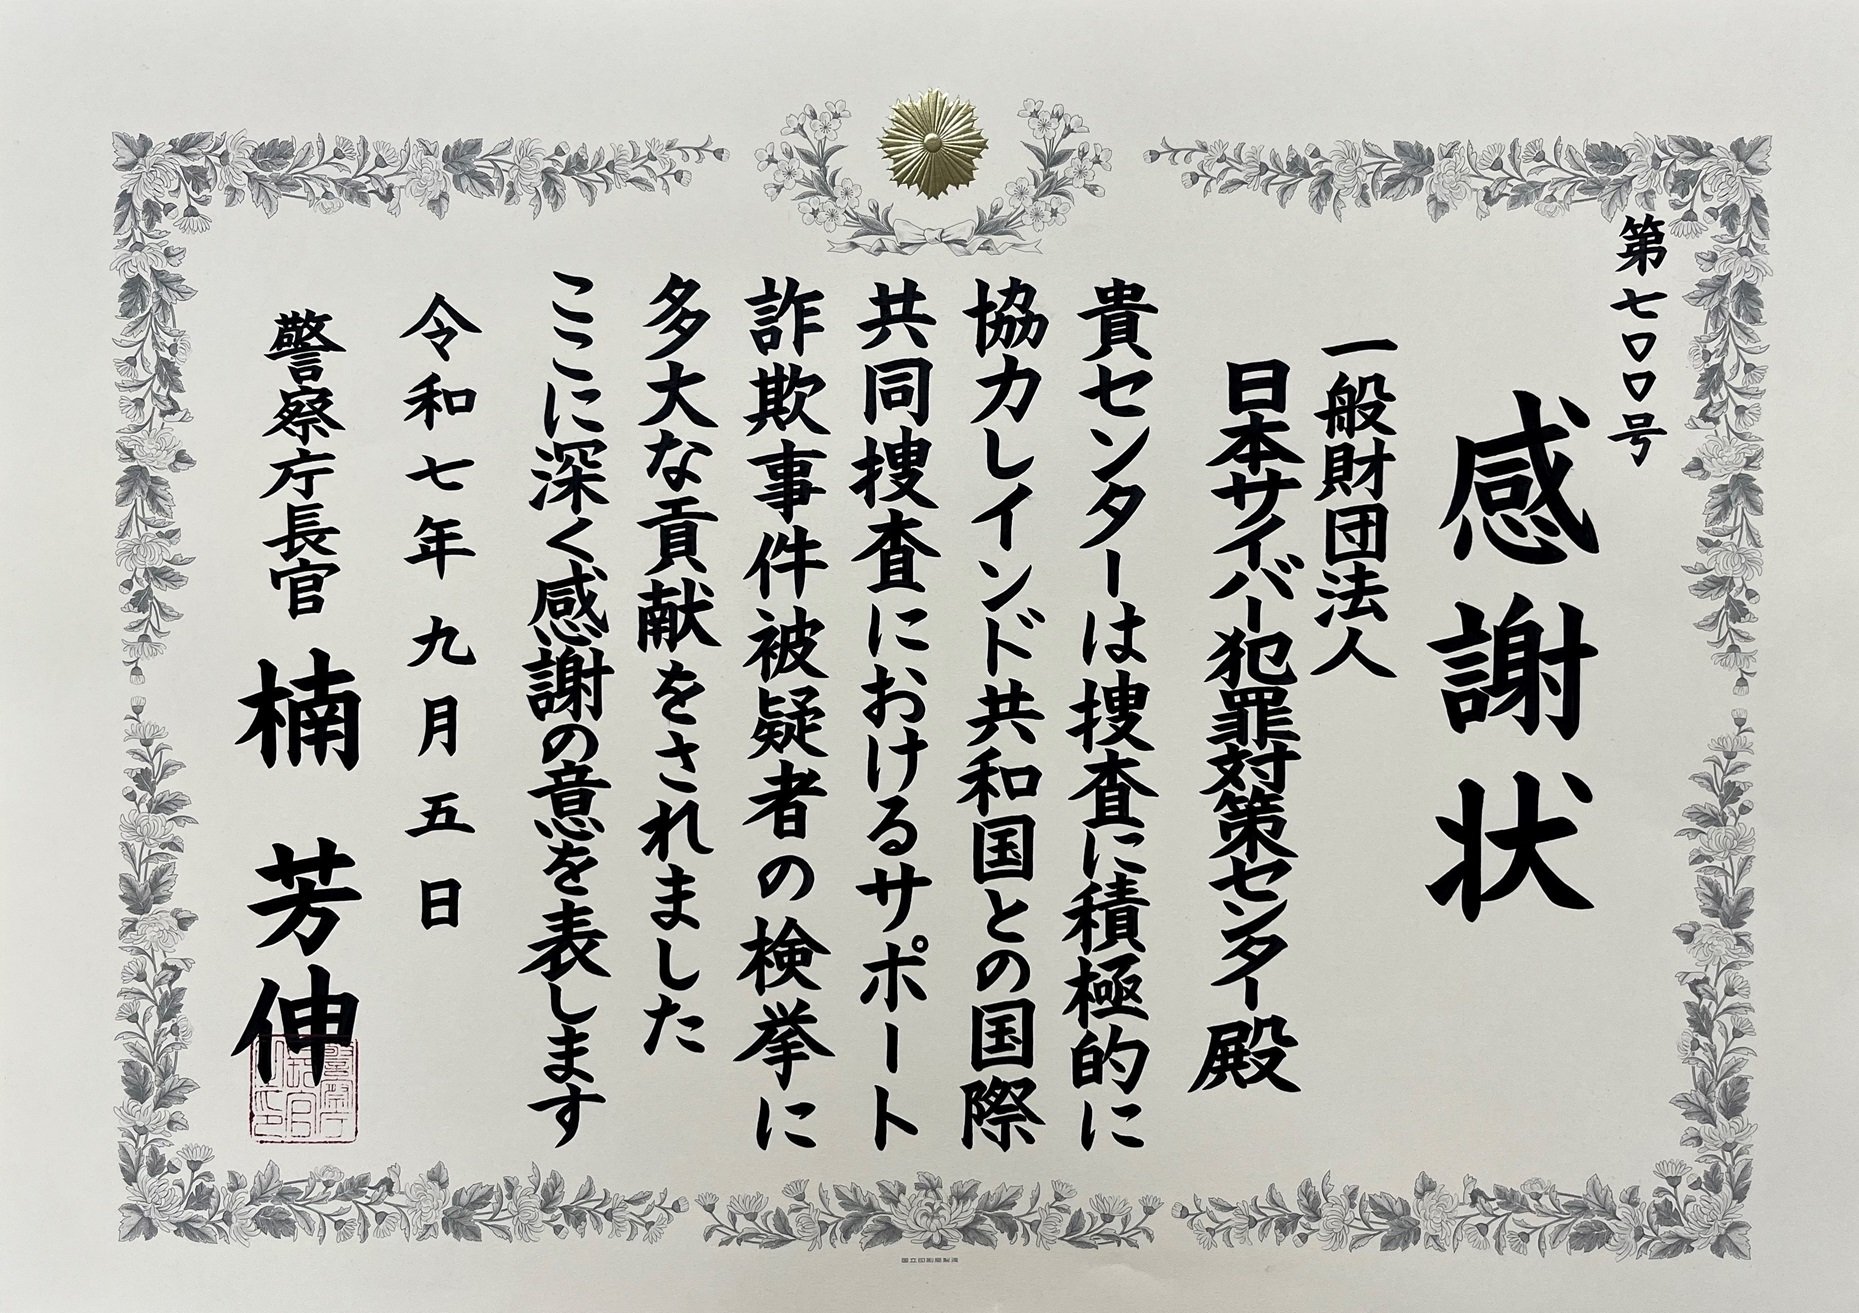 第七〇〇号
感謝状
一般財団法人
日本サイバー犯罪対策センター殿
貴センターは捜査に積極的に
協力しインド共和国との国際
共同捜査におけるサポート
詐欺事件被疑者の検挙に
多大な貢献をされました
ここに深く感謝の意を表します
令和七年九月五日
警察庁長官 楠 芳伸
国立印刷局製造